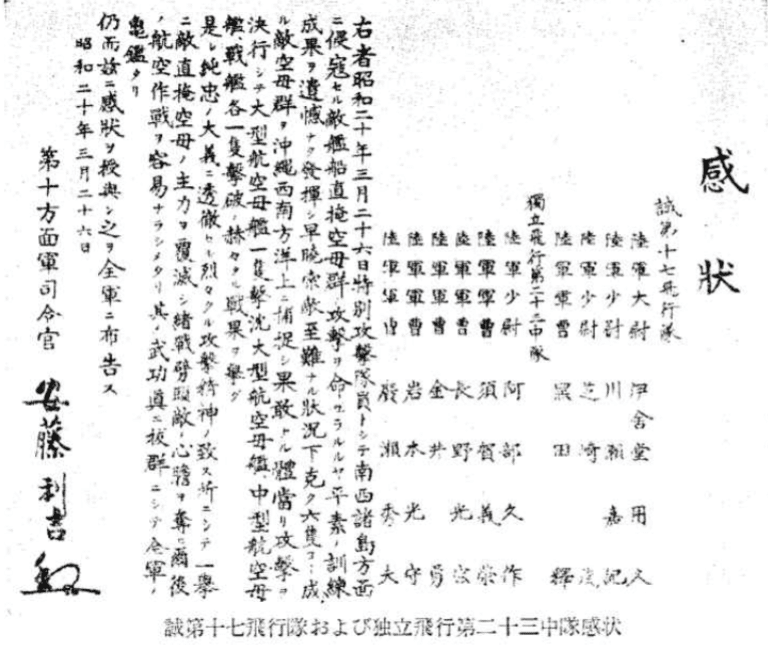 感状
誠第十七飛行隊
陸軍大尉 伊舍堂用久
陸軍少尉 川瀬嘉紀
陸軍少尉 芝崎茂
陸軍軍曹 黒田釋
獨立飛行第二十三中隊
陸軍少尉 阿部久作
陸軍軍曹 須賀義榮
陸軍軍曹 長野光宏
陸軍軍曹 金井勇
陸軍軍曹 岩本光守
陸軍軍曹 廣瀬秀夫
右者昭和二十年三月二十六日特別攻擊隊員トシテ南西諸島方面
ニ侵寇セル敵艦船直掩空母群ノ攻擊ヲ命ゼラルルヤ平素ノ訓練
成果ヲ遺憾ナク發揮シ早曉索敵至難ナル狀況下克ク六隻ヨリ成
ル敵空母群ヲ沖繩西南方洋上ニ捕捉シ果敢ナル體當リ攻擊ヲ
決行シテ大型航空母艦一隻擊沈大型航空母艦、中型航空母
艦戰艦各一隻擊破ノ赫々タル戰果ヲ擧グ
是レ純忠ノ大義ニ透徹セル烈々タル攻擊精神ノ致ス所ニシテ一擧
ニ敵直掩空母ノ主力ヲ覆滅シ緖戰劈頭敵ノ心膽ヲ奪ヒ爾後
ノ航空作戰ヲ容易ナラシメタリ其ノ武功眞ニ拔群ニシテ全軍ノ
龜鑑タリ
仍而玆ニ感狀ヲ授與シ之ヲ全軍ニ布告ス
昭和二十年三月二十六日
第十方面軍司令官 安藤利吉
誠第十七飛行隊および独立飛行第二十三中隊感状